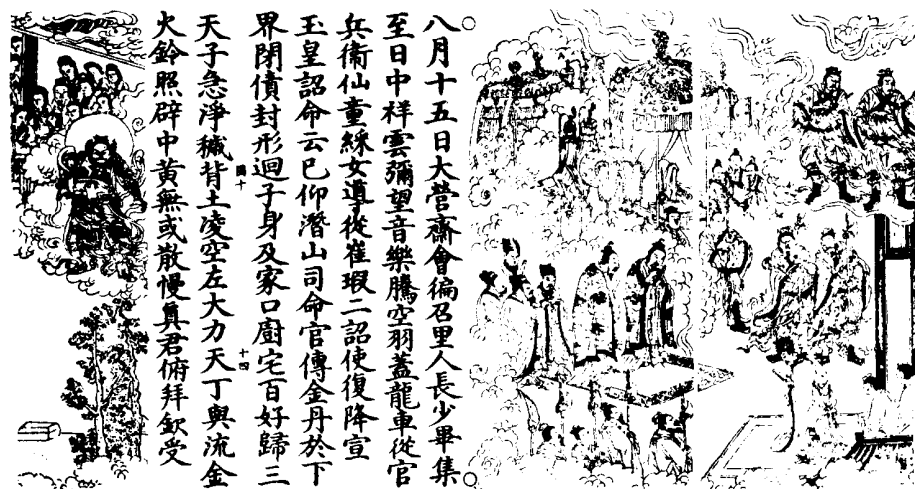 八月十五日大營齋會徧召里人長少畢集
至日中祥雲彌望音樂騰空羽蓋龍車從官
兵衛仙童綵女導從崔瑕二詔使復降宣
玉皇詔命云已仰潛山司命官傳金丹於下
界閉債封形迴子身及家口廚宅百好歸三
天子急淨穢背土凌空左大力天丁與流金
火鈴照辟中黃無或散慢真君俯拜欽受
圖十
十四